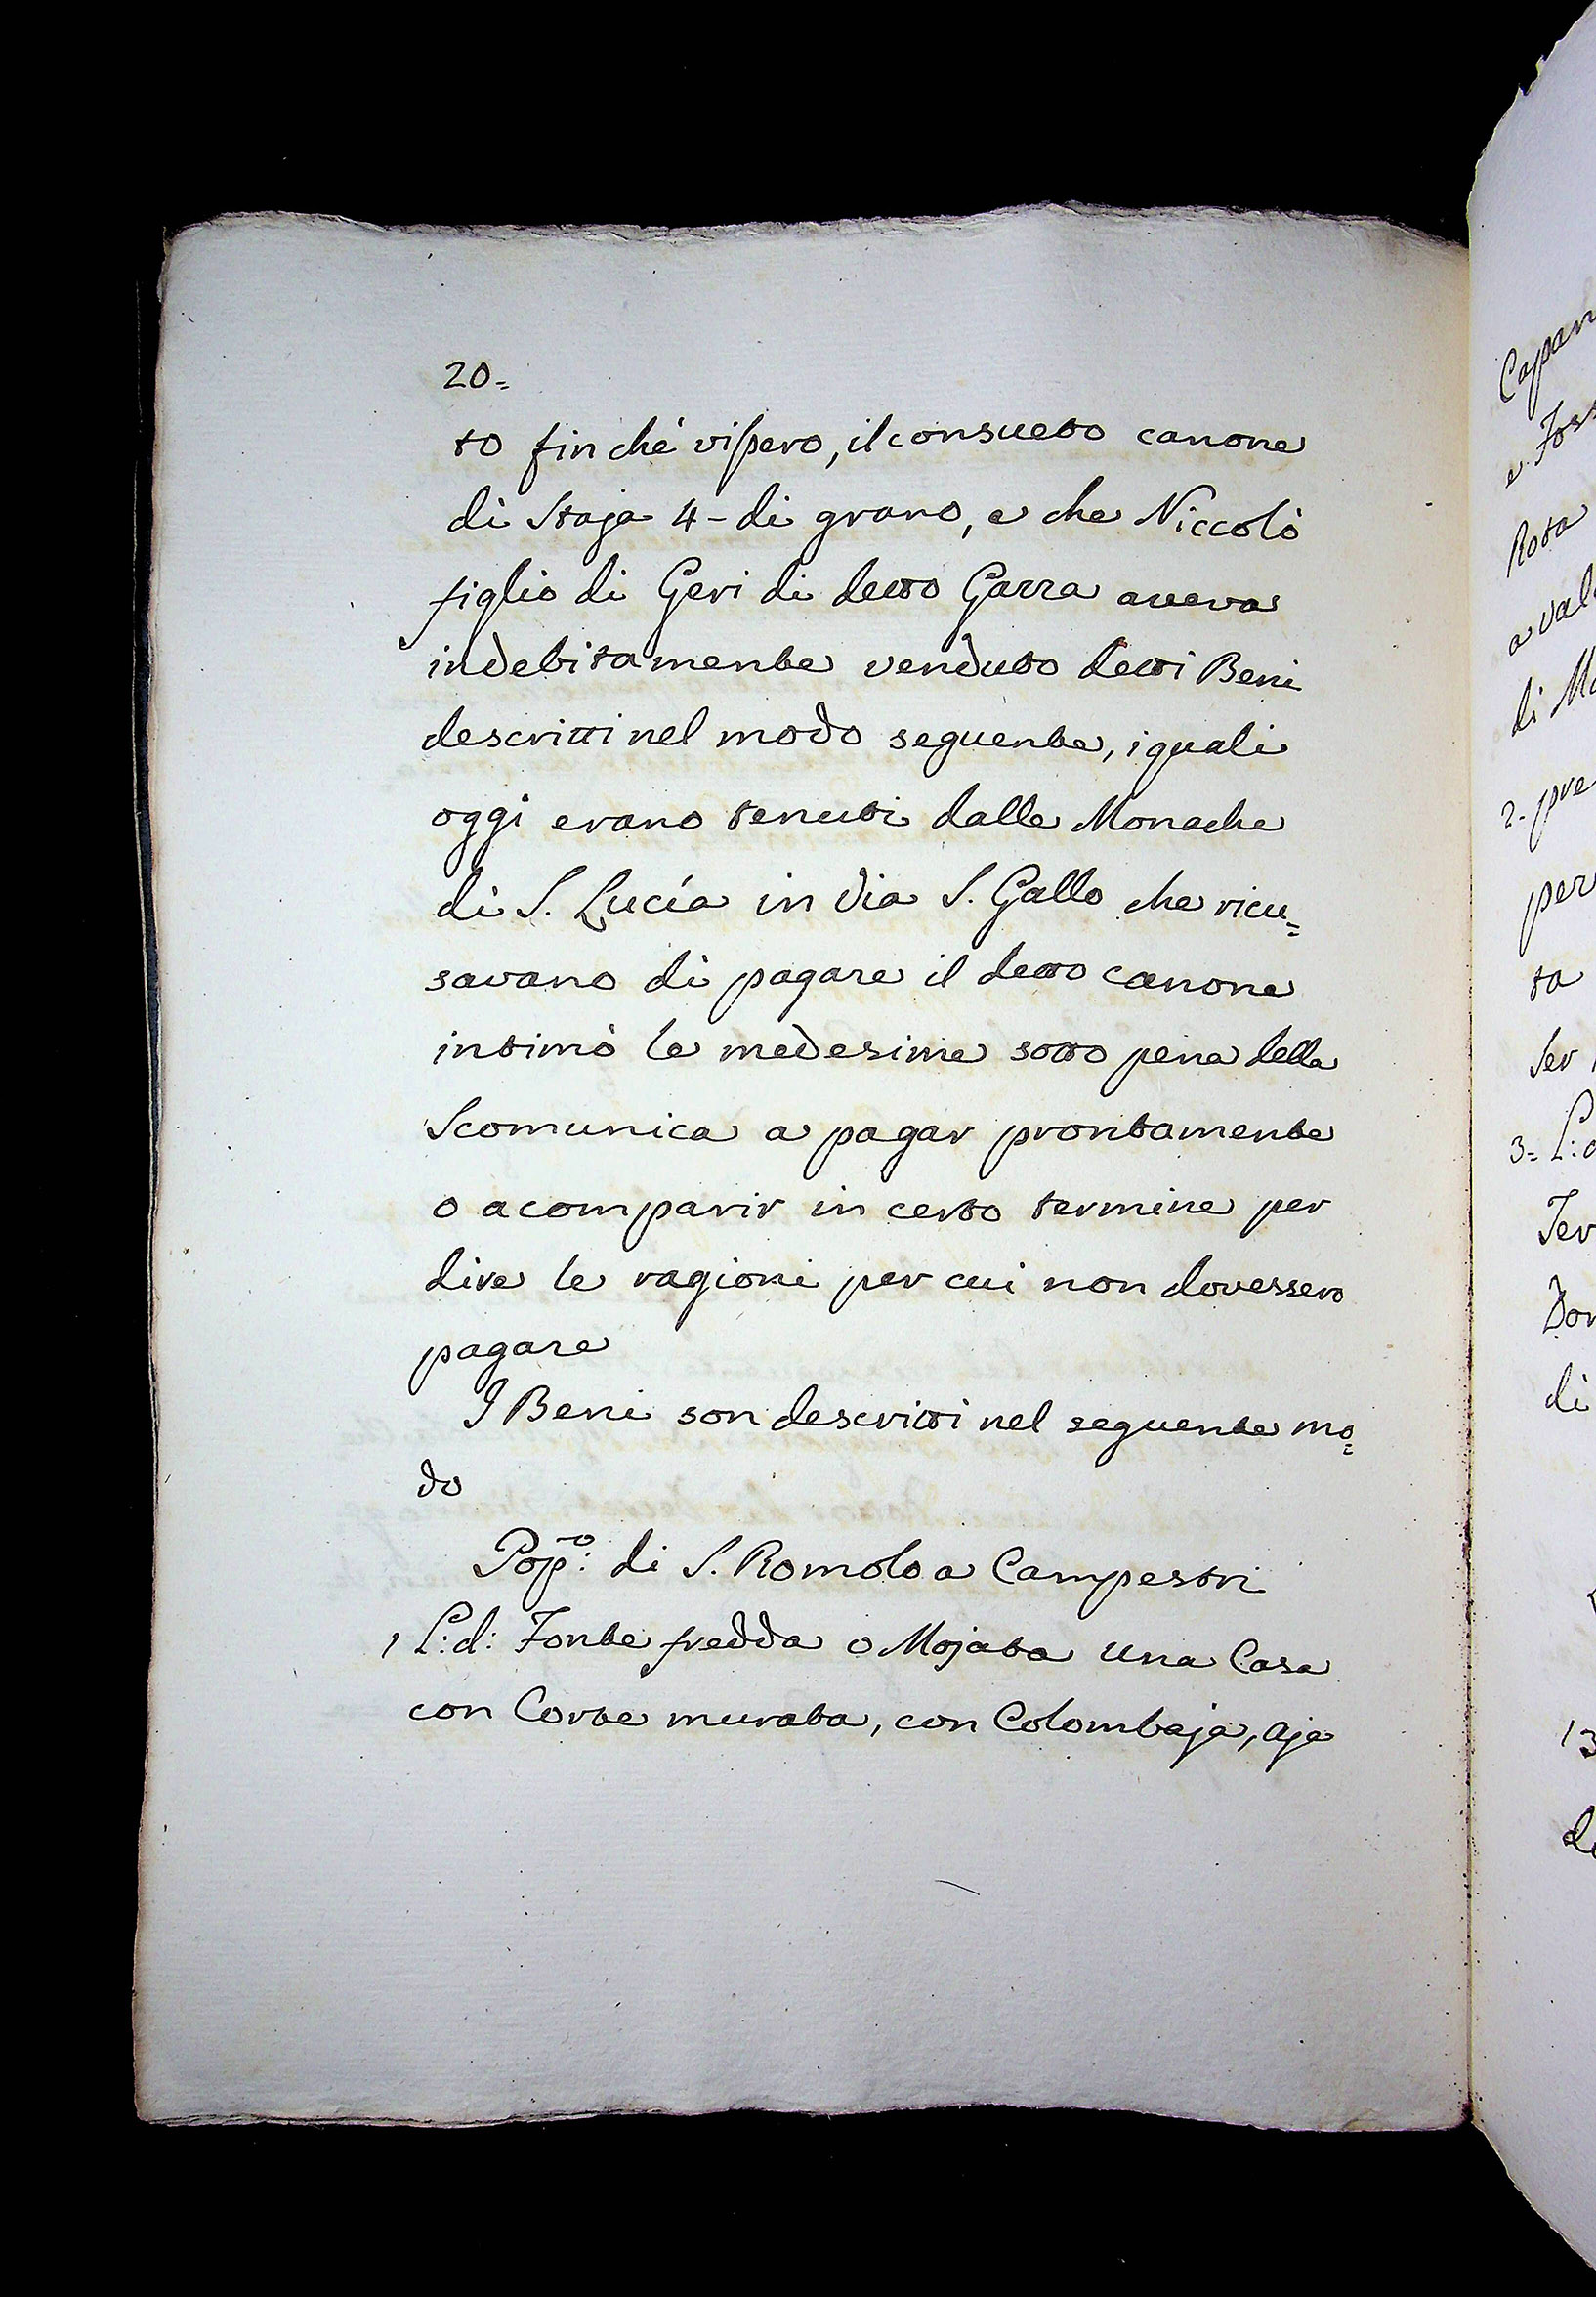 20=
to finché vissero, il consueto canone
di Staja 4 - di grano, e che Niccolò
figlio di Geri di detto Garra aveva
indebitamente venduto detti Beni
descritti nel modo seguente, i quali
oggi erano tenuti dalle Monache
di S. Lucía in Via S. Gallo che ricu=
savano di pagare il detto canone
intimò le medesime sotto pena della
Scomunica a pagar prontamente
o a comparir in certo termine per
dire le ragioni per cui non dovessero
pagare
I Beni son descritti nel seguente mo=
do
Pop.o: di S. Romolo a Campestri
1 L: d: Fonte fredda o Mojata una Casa
con Corte murata, con Colombaja, Aja
e
Rota
di
2-
per
ta
Ser
3=
di
13